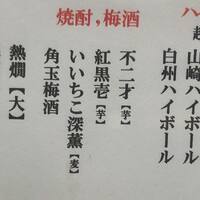 ハ
山崎ハイボール
白州ハイボール
焼酎,梅酒
不二才【芋】
紅黒壱【芋】
いいちこ深薫【麦】
角玉梅酒
熱燗【大】